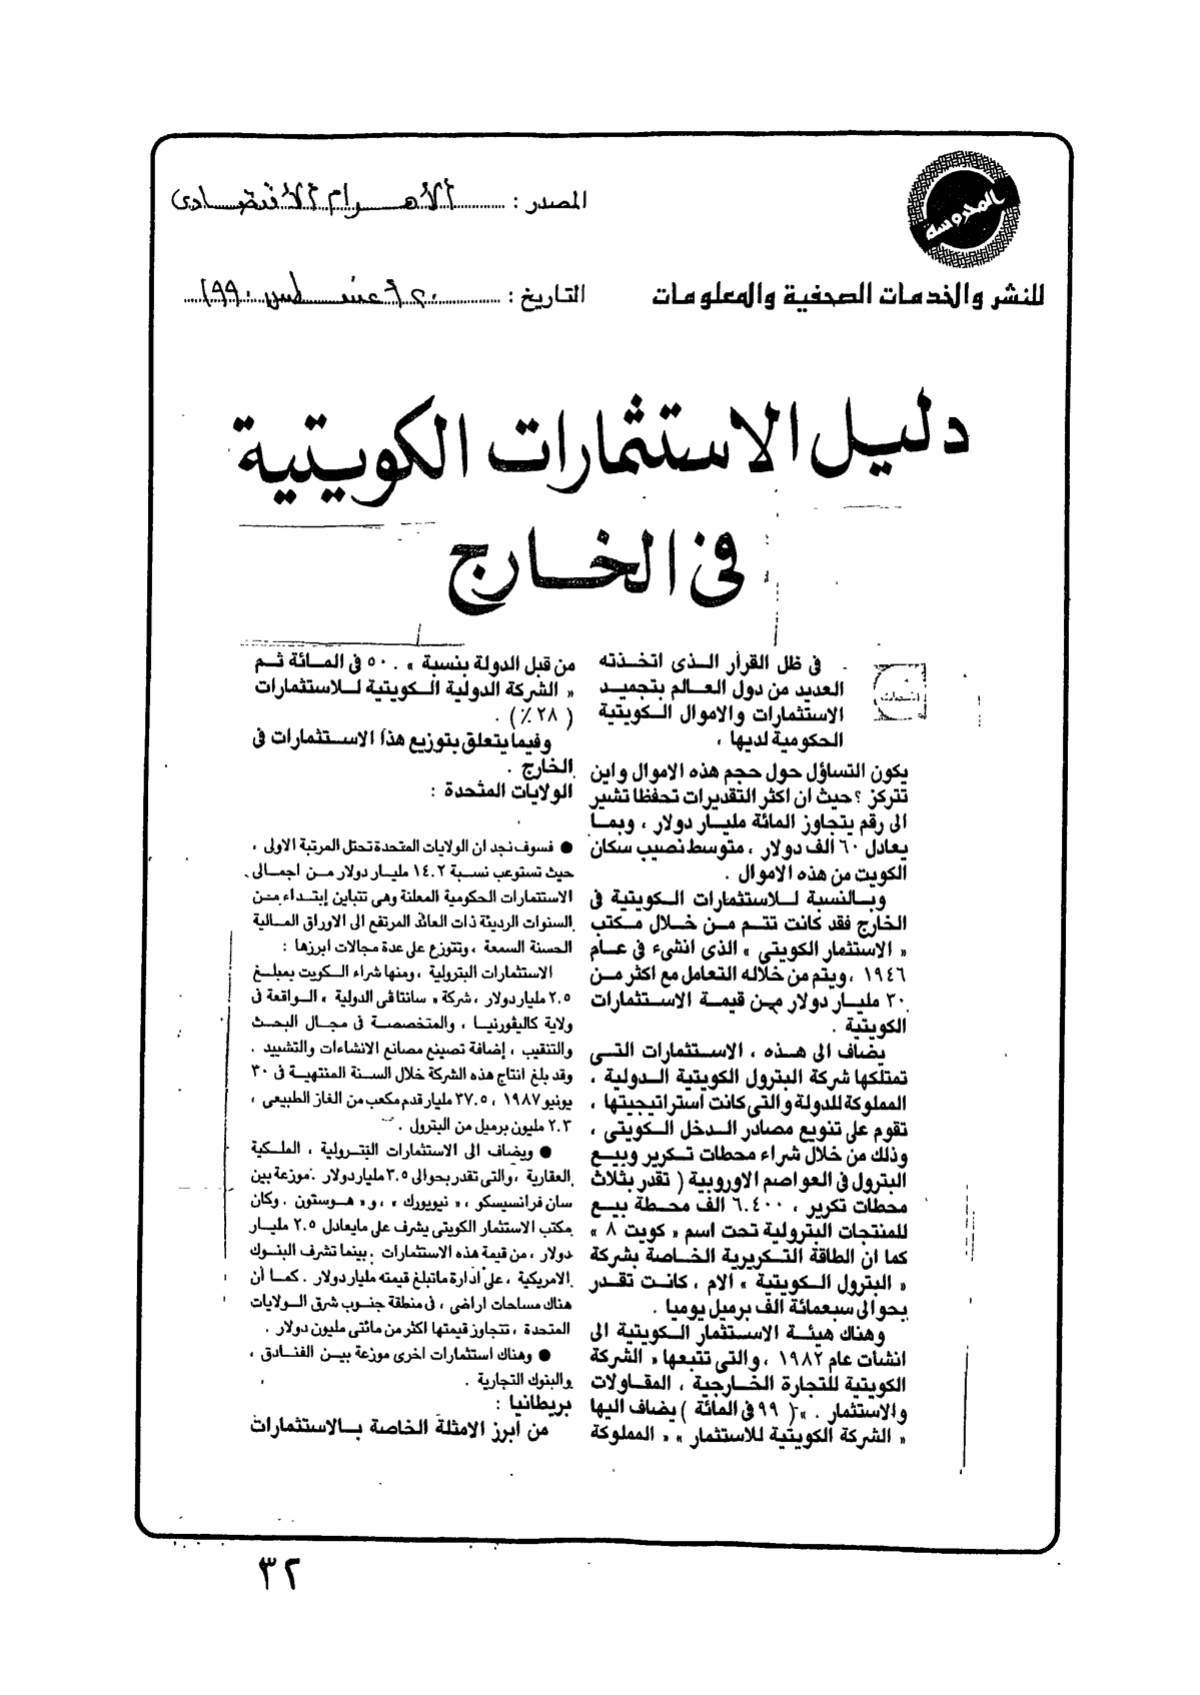 المحروسة
للنشر والخدمات الصحفية والمعلومات
المصدر : الأهرام الاقتصادى
التاريخ : ٢٠ أغسطس ١٩٩٠
دليل الاستثمارات الكويتية
فى الخارج
فى ظل القرار الذى اتخذته
العديد من دول العالم بتجميد
الاستثمارات والاموال الكويتية
الحكومية لديها ،
يكون التساؤل حول حجم هذه الاموال واين
تتركز ؟ حيث ان اكثر التقديرات تحفظا تشير
الى رقم يتجاوز المائة مليار دولار ، وبما
يعادل ٦٠ الف دولار ، متوسط نصيب سكان
الكويت من هذه الاموال .
وبالنسبة للاستثمارات الكويتية فى
الخارج فقد كانت تتم من خلال مكتب
« الاستثمار الكويتى » الذى انشىء فى عام
١٩٤٦ ، ويتم من خلاله التعامل مع اكثر من
٣٠ مليار دولار من قيمة الاستثمارات
الكويتية .
يضاف الى هذه ، الاستثمارات التى
تمتلكها شركة البترول الكويتية الدولية ،
المملوكة للدولة والتى كانت استراتيجيتها ،
تقوم على تنويع مصادر الدخل الكويتى ،
وذلك من خلال شراء محطات تكرير وبيع
البترول فى العواصم الاوروبية ( تقدر بثلاث
محطات تكرير ، ٦.٤٠٠ الف محطة بيع
للمنتجات البترولية تحت اسم « كويت ٨ »
كما ان الطاقة التكريرية الخاصة بشركة
« البترول الكويتية » الام ، كانت تقدر
بحوالى سبعمائة الف برميل يوميا .
وهناك هيئة الاستثمار الكويتية الى
انشات عام ١٩٨٢ ، والتى تتبعها « الشركة
الكويتية للتجارة الخارجية ، المقاولات
والاستثمار . » ( ٩٩ فى المائة ) يضاف اليها
« الشركة الكويتية للاستثمار » « المملوكة
من قبل الدولة بنسبة » . ٥٠ فى المائة ثم
« الشركة الدولية الكويتية للاستثمارات
( ٢٨٪ ) .
وفيما يتعلق بتوزيع هذا الاستثمارات فى
الخارج .
الولايات المتحدة :
● فسوف نجد ان الولايات المتحدة تحتل المرتبة الاولى ،
حيث تستوعب نسبة ١٤.٢ مليار دولار من اجمالى
الاستثمارات الحكومية المعلنة وهى تتباين إبتداء من
السنوات الرديئة ذات العائد المرتفع الى الاوراق المالية
الحسنة السمعة ، وتتوزع على عدة مجالات ابرزها :
الاستثمارات البترولية ، ومنها شراء الكويت بمبلغ
٢.٥ مليار دولار ، شركة « سانتافى الدولية » الواقعة فى
ولاية كاليفورنيا ، والمتخصصة فى مجال البحث
والتنقيب ، إضافة تصنيع مصانع الانشاءات والتشييد .
وقد بلغ انتاج هذه الشركة خلال السنة المنتهية فى ٣٠
يونيو ١٩٨٧ ، ٣٧.٥ مليار قدم مكعب من الغاز الطبيعى ،
٢.٣ مليون برميل من البترول .
● ويضاف الى الاستثمارات البترولية ، الملكية
العقارية ، والتى تقدر بحوالى ٣.٥ مليار دولار . موزعة بين
سان فرانسيسكو ، « نيويورك » ، و« هوستون . وكان
مكتب الاستثمار الكويتى يشرف على مايعادل ٢.٥ مليار
دولار ، من قيمة هذه الاستثمارات . بينما تشرف البنوك
الامريكية ، على ادارة ماتبلغ قيمته مليار دولار . كما أن
هناك مساحات اراضى ، فى منطقة جنوب شرق الولايات
المتحدة ، تتجاوز قيمتها اكثر من مائتى مليون دولار .
● وهناك استثمارات اخرى موزعة بين الفنادق ،
والبنوك التجارية .
بريطانيا :
من أبرز الامثلة الخاصة بالاستثمارات
٣٢